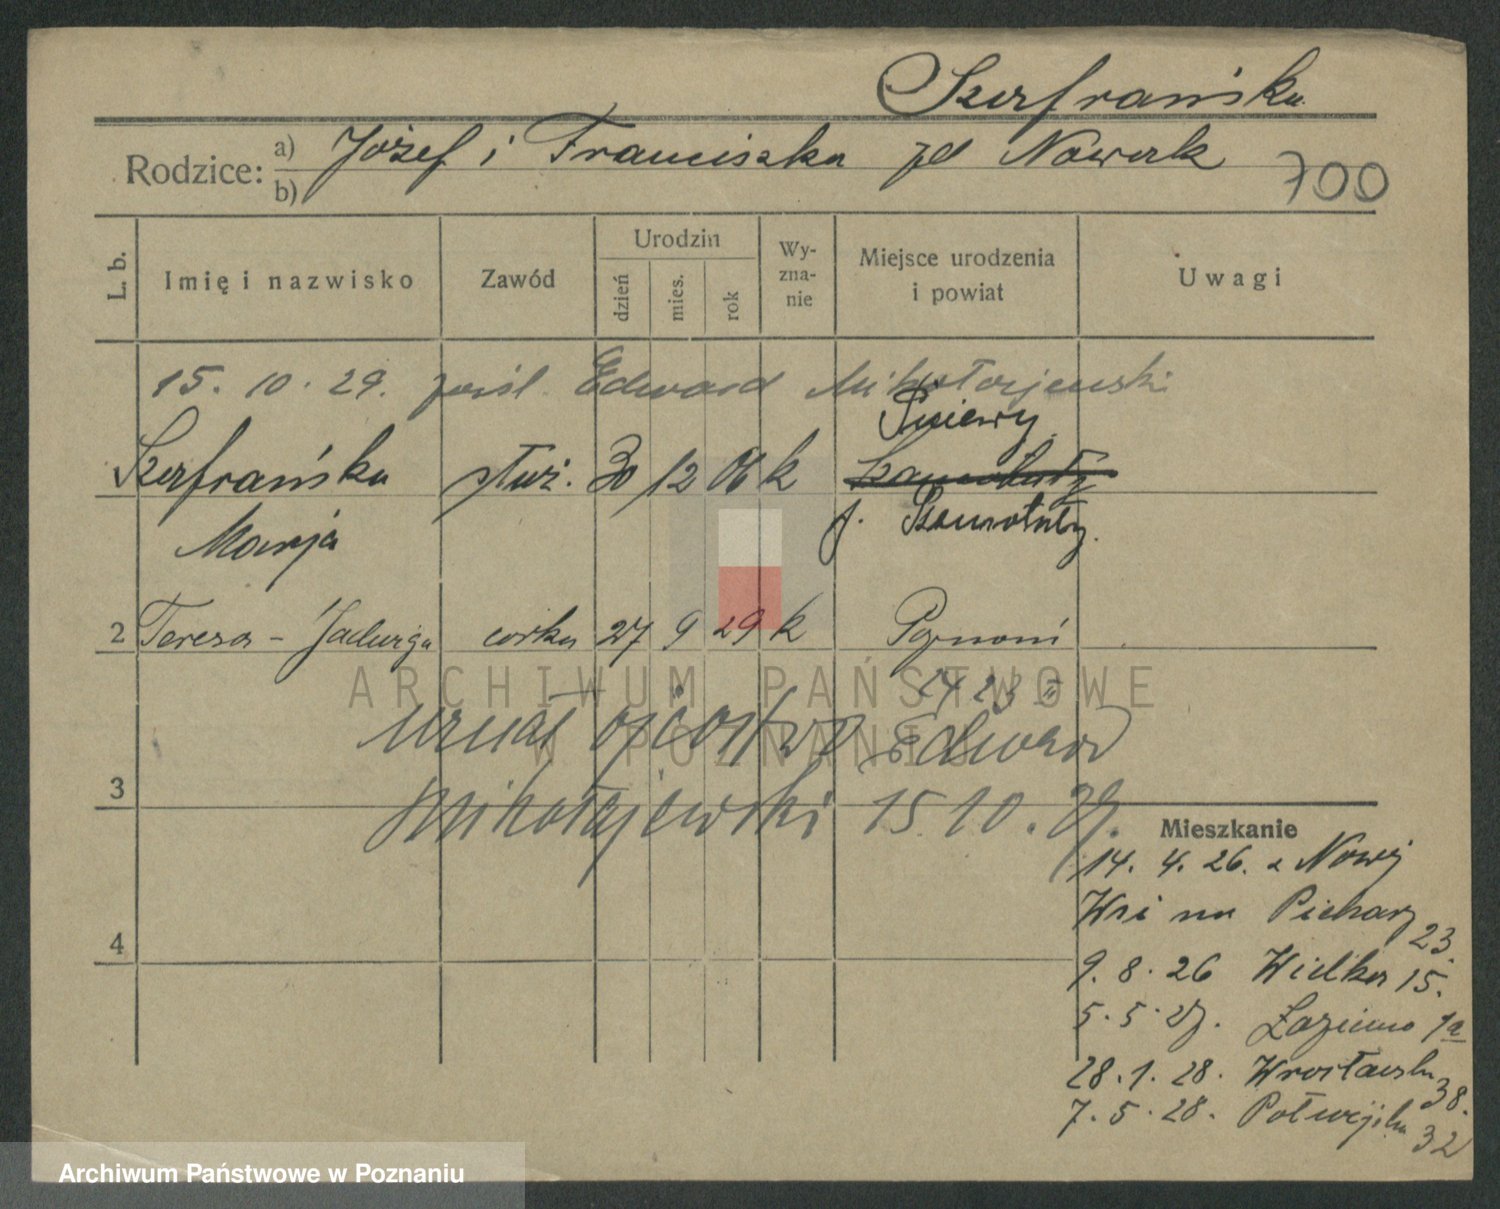 Szerfrańska
Rodzice: a) Józef i Franciszka zd Nowak
b)
700
L. b.
Imię i nazwisko
Zawód
Urodzin
dzień
mies.
rok
Wy-
zna-
nie
Miejsce urodzenia
i powiat
Uwagi
15. 10. 29. Edward Mikołajewski
Pniewy
Szerfrańska służ. 30 12 06 k Szamotuły
Marja p. Szamotuły.
2 Teresa - Jadwiga córka 27 9 29 k Poznań
uznał ojcostwo Edward
3
Mikołajewski 15 10. 29.
Mieszkanie
14. 4. 26. z Nowej
Wsi na Piekary 23.
4
9. 8. 26 Wielka 15.
5. 5. 27. Łazienna 1a
28. 1. 28. Wrocławska 38.
7. 5. 28. Półwiejska 32
ARCHIWUM PAŃSTWOWE
W POZNANIU
Archiwum Państwowe w Poznaniu